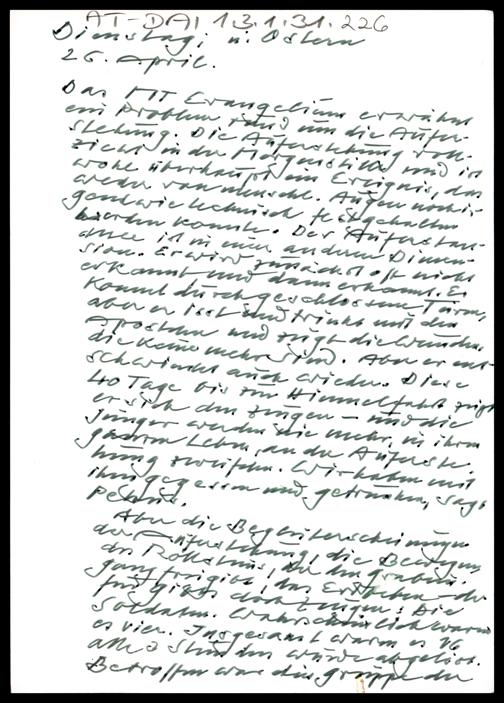 AT-DAI 13.1.31.226
Dienstag i. d. Ostern
26. April.
Das MT Evangelium erwähnt
ein Problem rund um die Aufer-
stehung. Die Auferstehung voll-
zieht in der Morgenstille und ist
wohl überhaupt ein Ereignis, das
weder von menschl. Augen noch ir-
gendwie technisch festgehalten
werden konnte. Der Auferstan-
dene ist in einer anderen Dimen-
sion. Er wird zunächst oft nicht
erkannt und dann erkannt. Er
kommt durch geschlossene Türen,
aber er isst und trinkt mit den
Aposteln und zeigt die Wunden,
die keine mehr sind. Aber er ent-
schwindet auch wieder. Diese
40 Tage bis zur Himmelfahrt zeigt
er sich den Zeugen – und die
Jünger werden nie mehr, in ihrem
ganzen Leben, an der Aufersteh-
hung zweifeln. Wir haben mit
ihm gegessen und getrunken, sagt
Petrus.
Aber die Begleiterscheinungen
der Auferstehung, die Bewegung
des Rollsteins, der den
gang freigibt, das Erdbeben – da-
für gibt es doch Zeugen: Die
Soldaten. Wahrscheinlich waren
es vier. Insgesamt waren es 16
alle 3 Stunden wurde abgelöst.
Betroffen war die Gruppe der